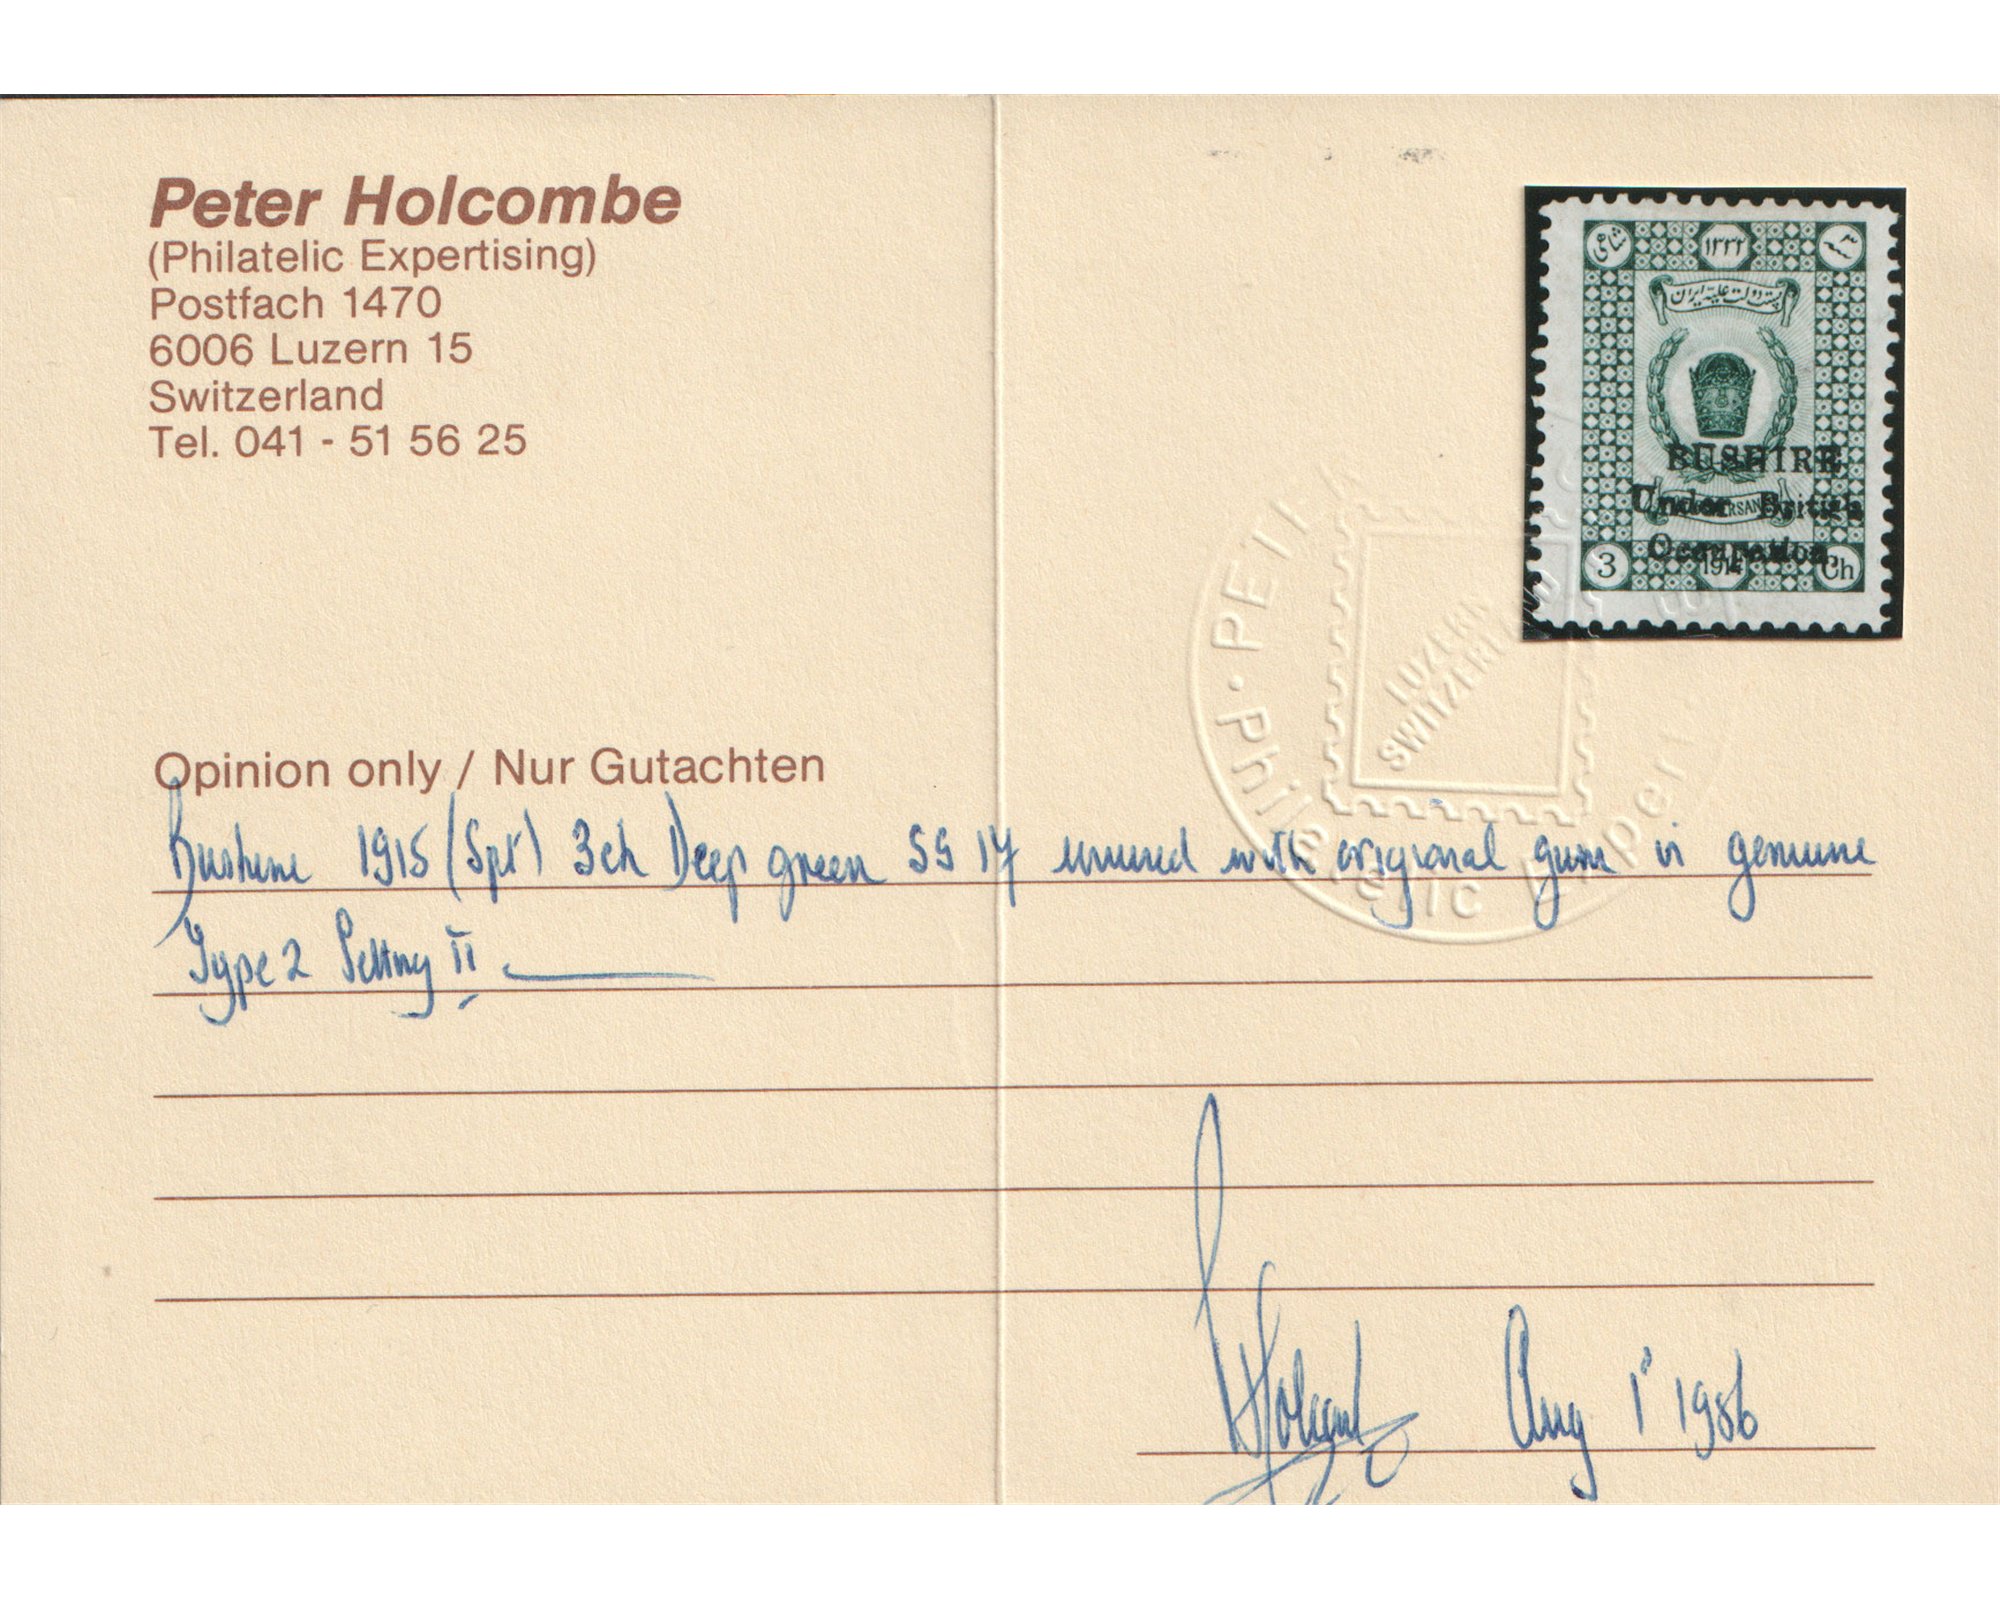 Peter Holcombe
(Philatelic Expertising)
Postfach 1470
6006 Luzern 15
Switzerland
Tel. 041 - 51 56 25
شاهی ۱۳۳۲ ۳
پست دولت علیّه ایران
BUSHIRE
Under British
Occupation.
3 1914 Ch
PETE
LUZERN
SWITZERL
Philatelic Exper
Opinion only / Nur Gutachten
Bushire 1915 (Spt) 3ch Deep green SG 17 unused with original gum is genuine
Type 2 Setting II
Holcombe Aug 1st 1986